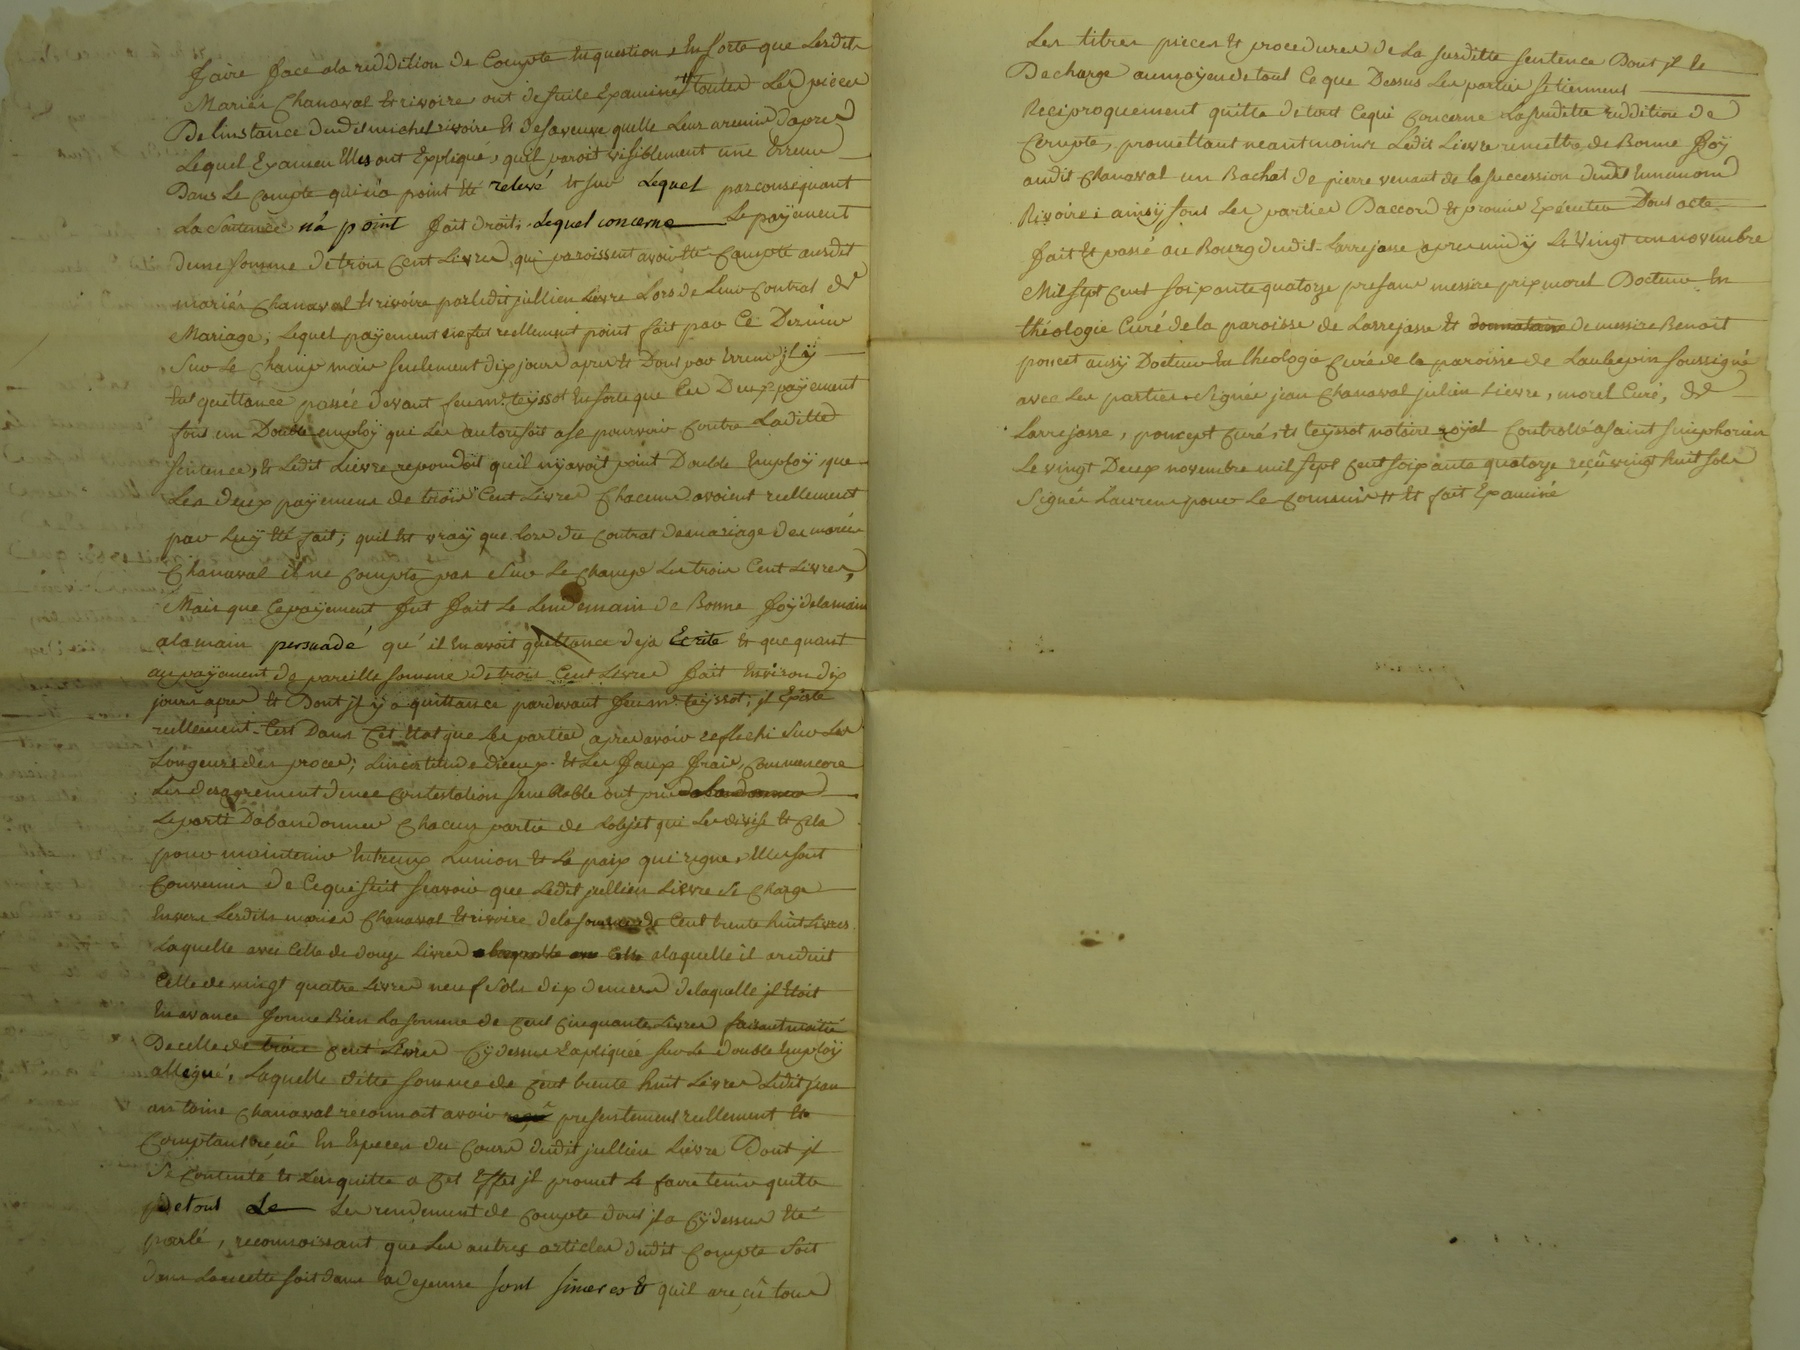 faire face ala reddition de Compte En question, En sorte que Lesdits
Mariés Chanaval Et rivoire ont de suite Examiné toutes Les pieces
De linstance dudit michel rivoire Et de sa veuve quelle Leur a remis Dapres
Lequel Examen Elles ont Expliqué, quil paroit visiblement une Erreur
Dans Le Compte qui n'a point Eté relevé Et sur Lequel par consequant
La Santence n'a point fait droit, Lequel concerne Le payement
dune somme de trois Cent Livres, qui paroissent avoir Eté Compté ausdit
mariés Chanaval Et rivoire par ledit jullien Lievre Lors de Leur Contrat de
Mariage, Lequel payement ne fut reellement point fait par Ce Dernier
Sur Le Champ mais seulement dix jours apres Et Dont par Erreur jl ÿ
Eut quittance passée devant feu me. teyssot En sorte que Ces Deux payement
font un Double employ qui Les autorisoit a se pourvoir Contre Laditte
Sentence, Et Ledit Lievre repondoit quil nÿ avoit point Double Employ, que
Les deux payemens de trois Cent Livres Chacuns avoient reellement
par Luÿ Eté fait; quil Est vraÿ que lors du Contrat de mariage des mariés
Chanaval il ne Compta pas Sur Le Champ Les trois Cent Livres,
Mais que Ce payement fut fait Le Lendemain de Bonne foÿ de la main
a la main persuadé qu'il En avoit quittance deja Ecrite Et que quant
au payement de pareille somme de trois Cent Livres fait Environ dix
jours apres Et Dont jl y a quittance pardevant feu me. teyssot, jl Existe
reellement. C'est Dans Cet Etat que Les parties apres avoir reflechi Sur Les
Longeurs des proces, Lincertitude d'iceux. Et Les faux frais, Comme encore
Les desagrement dune Contestation semblable ont pris dabandonner
Le parti Dabandonner Chacun partie de Lobjet qui Les divise Et Cela
pour maintenir Entreux Lunion Et La paix qui regne, Elles sont
Convenus de Ce qui suit scavoir que Ledit jullien Lievre Se Charge
Envers Lesdits mariés Chanaval Et rivoire de la somme de Cent trente huit Livres
Laquelle avec Celle de douze Livres laquelle avec Celle a laquelle il a reduit
Celle de vingt quatre Livres neuf Sols dix deniers de laquelle jl Etoit
En avance forme Bien La somme de Cent Cinquante Livres faisant moitié
De celle de trois Cent Livres Cÿ dessus Expliquée sur Le double Employ
allegué, Laquelle ditte somme de Cent trente huit Livres Ledit jean
antoine Chanaval reconnoit avoir reçu presentement reellement Et
Comptant reçû En Especes du Cours dudit jullien Lievre Dont jl
Se Contente Et L'en quitte a Cet Effet jl promet Le faire tenir quitte
de tout Le Les rendement de Compte dont jl a Cÿ dessus Eté
parlé, reconnoissant que Les autres articles dudit Compte Soit
dans La recette soit dans La depense sont sinceres Et quil a reçû tous
Les titres pieces Et procedures de La susditte sentence Dont jl Le
Decharge au moyen de tout Ce que Dessus Les parties se tiennent
Reciproquement quitte de tout Ce qui Concerne La susditte reddition de
Compte, promettant neantmoins Ledit Lievre remettre de Bonne foÿ
audit Chanaval un Bachat de pierre venant de la succession dudit
Rivoire: ainsÿ sont Les parties Daccord Et promis Executer Dont acte
fait Et passé au Bourg dudit Larrejasse apres midÿ Le Vingt un novembre
Mil sept Cent soixante quatorze presans messire prix morel Docteur En
théologie Curé de la paroisse de Larrejasse Et donnataire de messire Benoit
poncet ausÿ Docteur En theologie Curé de la paroisse de Laubepin soussignés
avec Les parties. Signés jean Chanaval julien Lievre, morel Curé, de
Larrejasse, poncept Curé, Et teyssot notaire roÿal Controllé a saint simphorien
Le vingt Deux novembre mil sept Cent soixante quatorze reçû vingt huit sols
Signés Laurens pour Le Commis # Et fait Examiné